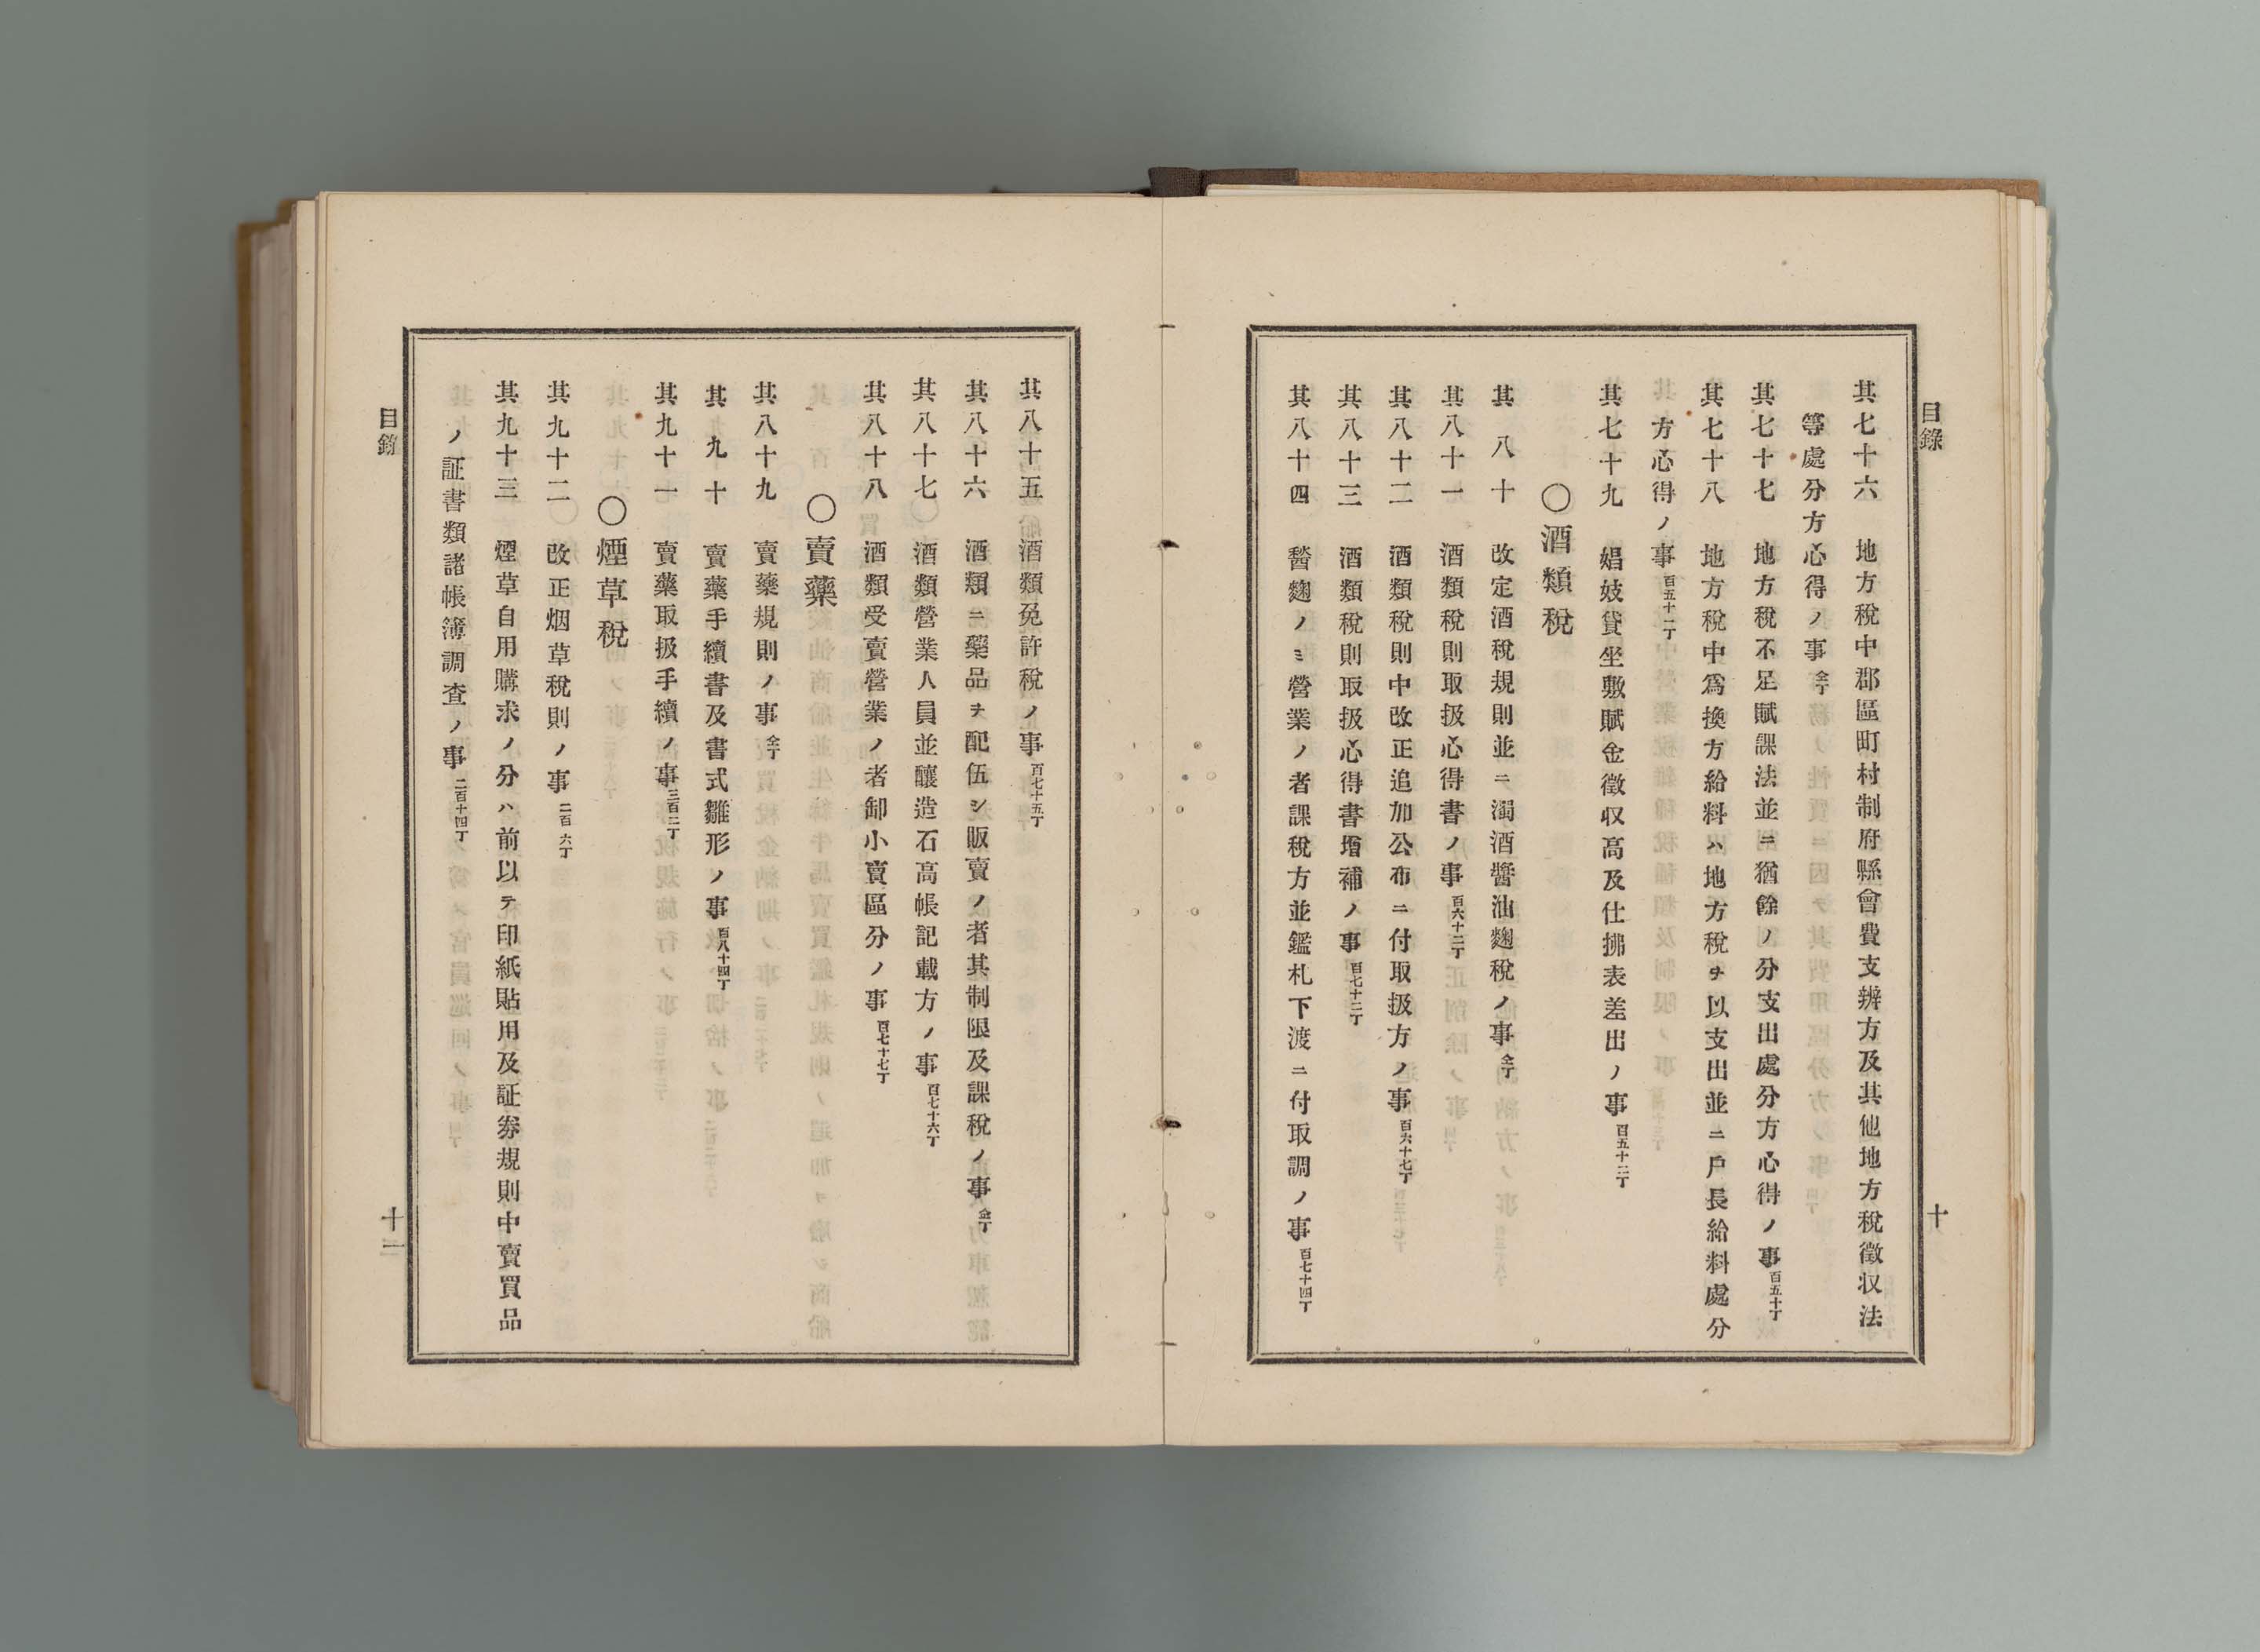 目錄
十
其七十六 地方稅中郡區町村制府縣會費支辨方及其他地方稅徵収法
等處分方心得ノ事 仝丁
其七十七 地方稅不足賦課法並ニ猶餘ノ分支出處分方心得ノ事 百五十丁
其七十八 地方稅中爲換方給料ハ地方稅ヲ以支出並ニ戶長給料處分
方心得ノ事 百五十二丁
其七十九 娼妓貸坐敷賦金徵収高及仕拂表差出ノ事 百五十二丁
〇酒類稅
其八十 改定酒稅規則並ニ濁酒醬油麴稅ノ事 仝丁
其八十一 酒類稅則取扱心得書ノ事 百六十二丁
其八十二 酒類稅則中改正追加公布ニ付取扱方ノ事 百六十七丁
其八十三 酒類稅則取扱心得書增補ノ事 百七十二丁
其八十四 麴ノミ營業ノ者課稅方並鑑札下渡ニ付取調ノ事 百七十四丁
其八十五 酒類免許稅ノ事 百七十五丁
其八十六 酒類ニ藥品ヲ配伍シ販賣ノ者其制限及課稅ノ事 仝丁
其八十七 酒類營業人員並釀造石高帳記載方ノ事 百七十六丁
其八十八 酒類受賣營業ノ者卸小賣區分ノ事 百七十七丁
〇賣藥
其八十九 賣藥規則ノ事 仝丁
其九十 賣藥手續書及書式雛形ノ事 百八十四丁
其九十一 賣藥取扱手續ノ事 二百二丁
〇煙草稅
其九十二 改正烟草稅則ノ事 二百六丁
其九十三 煙草自用購求ノ分ハ前以テ印紙貼用及証券規則中賣買品
ノ証書類諸帳簿調査ノ事 二百十四丁
目錄
十一